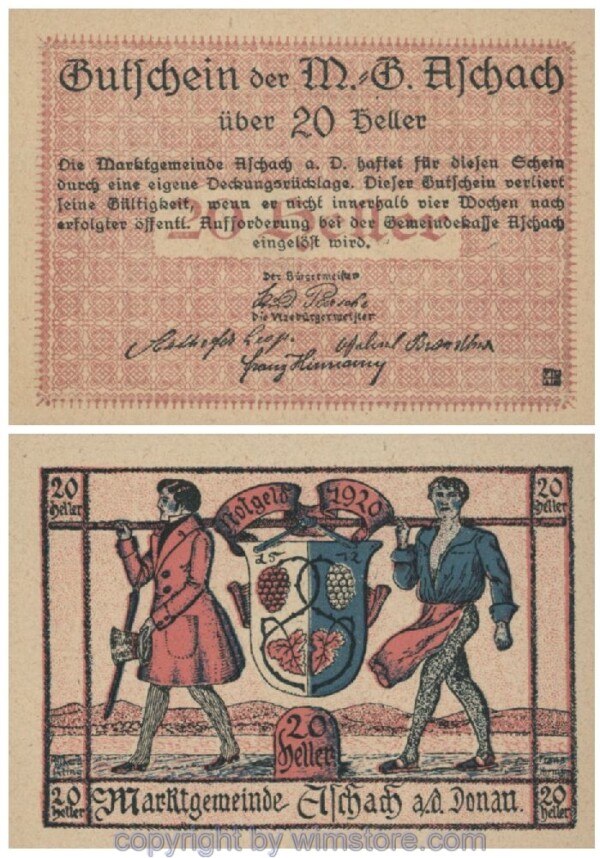 Gutschein der M.=G. Aschach
über 20 Heller
Die Marktgemeinde Aschach a. D. haftet für diesen Schein
durch eine eigene Deckungsrücklage. Dieser Gutschein verliert
seine Gültigkeit, wenn er nicht innerhalb vier Wochen nach
erfolgter öffentl. Aufforderung bei der Gemeindekasse Aschach
eingelöst wird.
20 Heller
Der Bürgermeister
Die Vizebürgermeister
20 Heller
Notgeld 1920
20 Heller
15 72
20
Heller
20 Heller
Marktgemeinde Aschach a/d. Donau.
20 Heller
copyright by wimstore.com